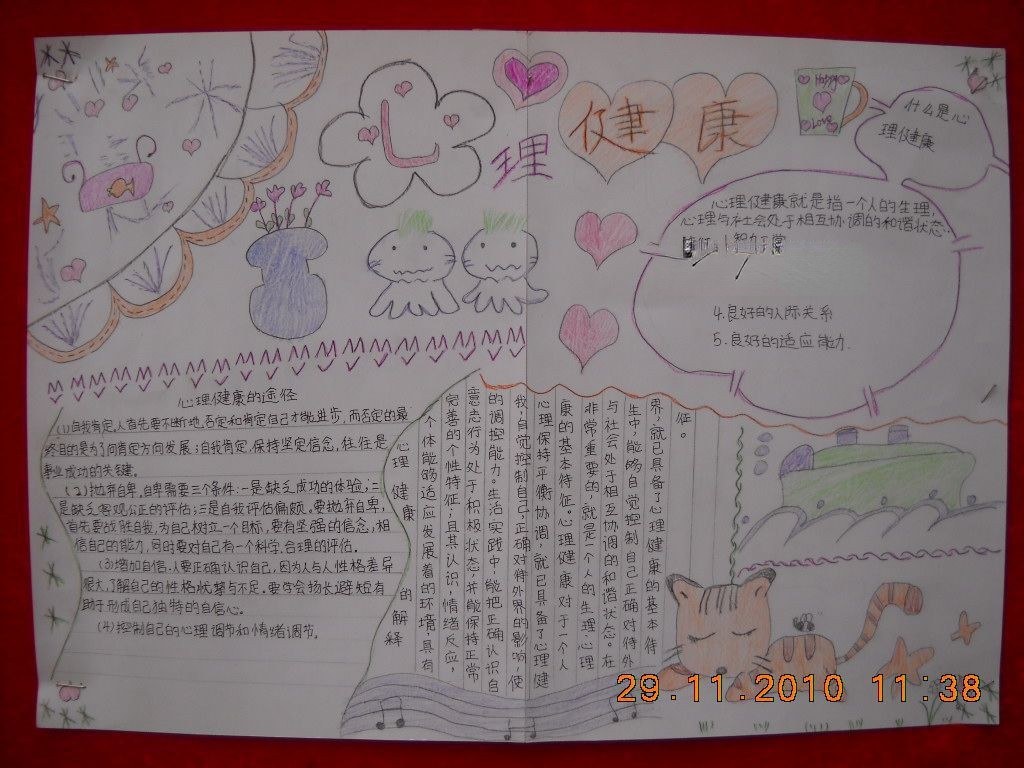 心理健康
Happy
Love
什么是心
理健康
心理健康就是指一个人的生理,
心理与社会处于相互协调的和谐状态.
4.良好的人际关系
5.良好的适应能力.
心理健康的途径
(1)自我肯定,人首先要不断地否定和肯定自己才能进步,而否定的最
终目的是为了向肯定方向发展;自我肯定,保持坚定信念,往往是
事业成功的关键。
(2)抛弃自卑,自卑需要三个条件:一是缺乏成功的体验,二
是缺乏客观公正的评估;三是自我评估偏颇。要抛弃自卑,
首先要战胜自我,为自己树立一个目标,要有坚强的信念,相
信自己的能力,同时要对自己有一个科学,合理的评估。
(3)增加自信.人要正确认识自己,因为人与人性格差异
很大,了解自己的性格优势与不足.要学会扬长避短有
助于形成自己独特的自信心。
(4)控制自己的心理调节和情绪调节。
心理健康的解释
个体能够适应发展着的环境,具有
完善的个性特征;且其认识,情绪反应,
意志行为处于积极状态,并能保持正常
的调控能力。生活实践中,能把正确认识自
我,自觉控制自己,正确对待外界的影响,使
心理保持平衡协调,就已具备了心理健
康的基本特征。心理健康对于一个人
非常重要的,就是一个人的生理,心理
与社会处于相互协调的和谐状态。在
生中,能够自觉控制自己正确对待外
界,就已具备了心理健康的基本特
征。
29.11.2010 11:38